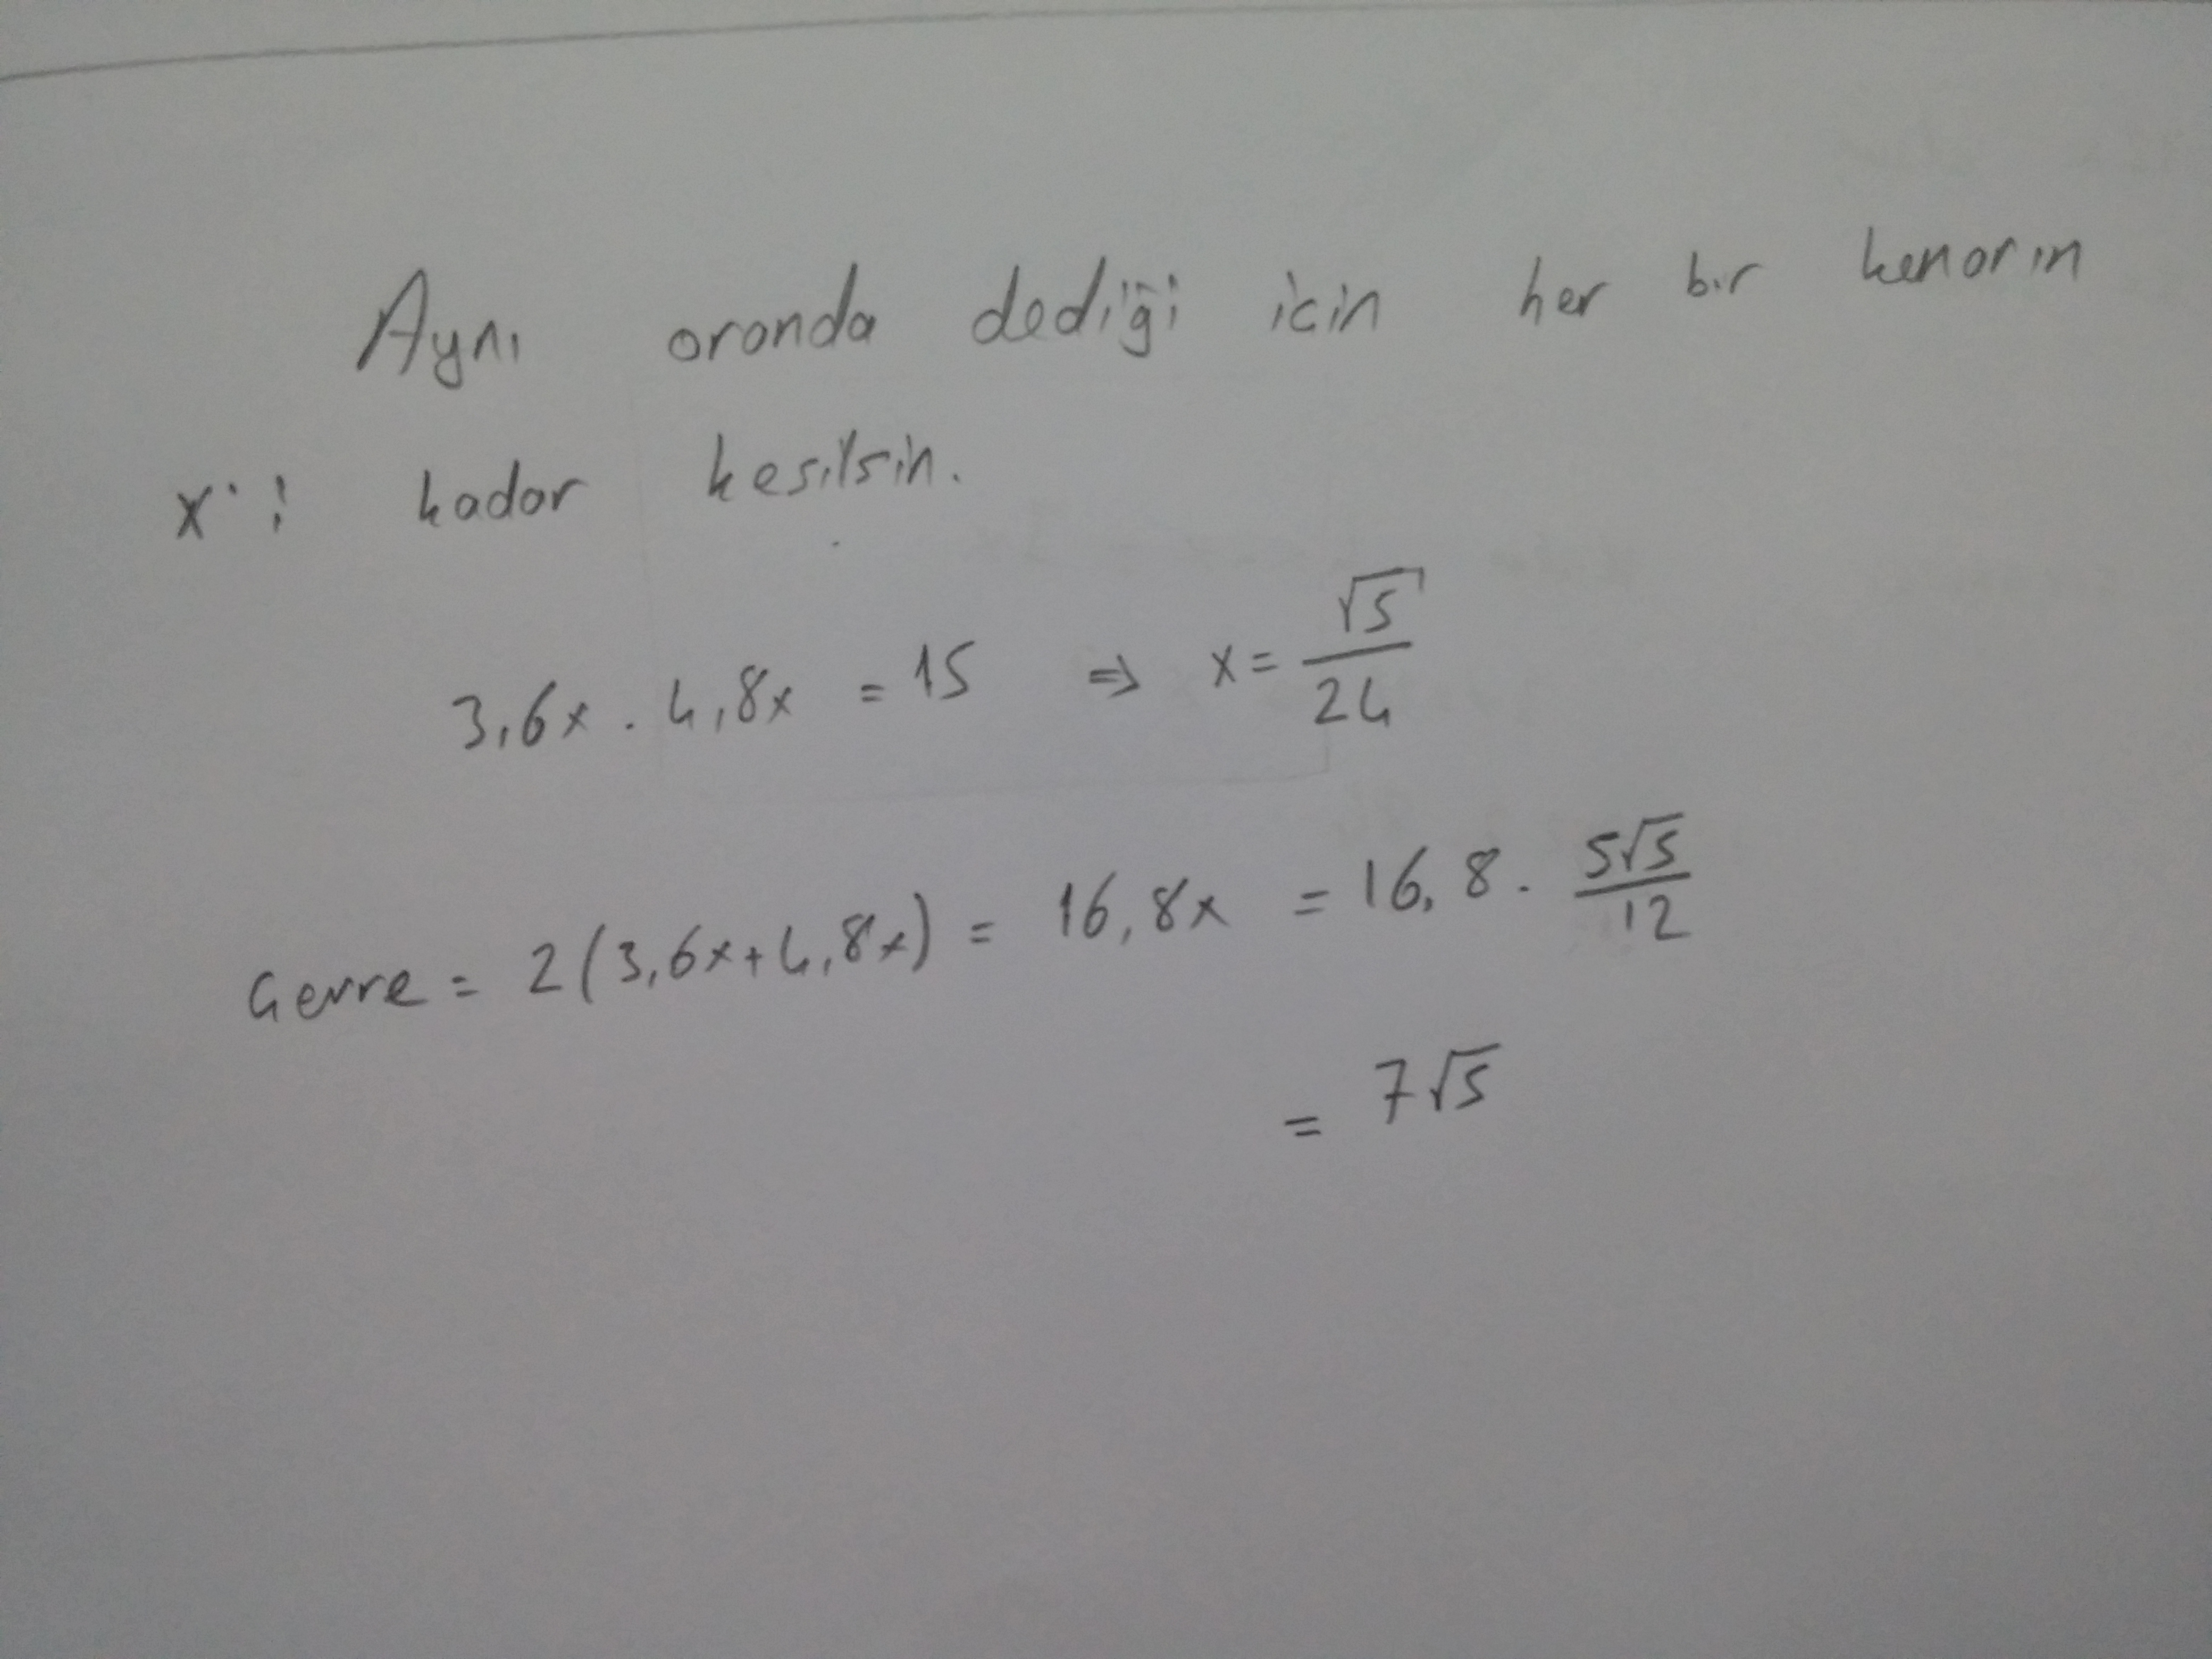 Aynı oranda dediği icin her bir kenarın
x'i kadar kesilsin.
3,6x . 4,8x = 15 ⇒ x = √5/24
Çevre = 2(3,6x+4,8x) = 16,8x = 16,8 . 5√5/12
= 7√5